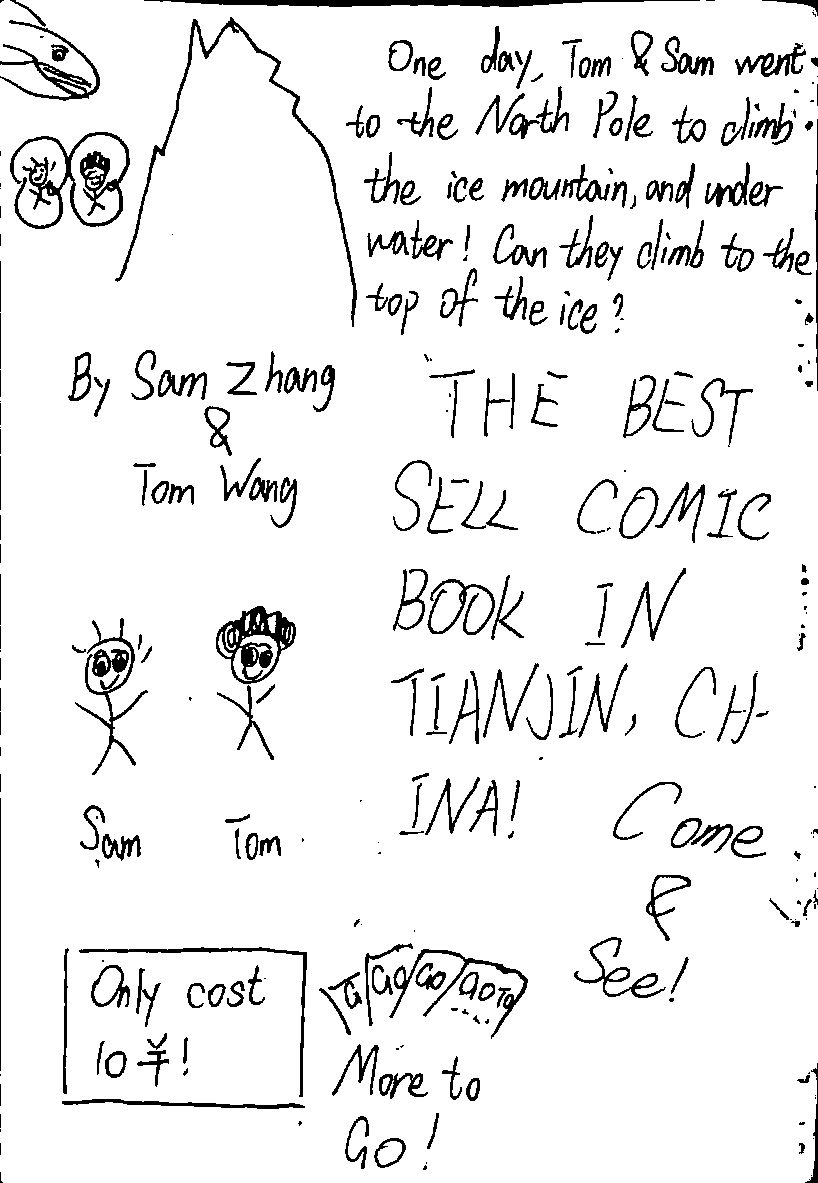 One day, Tom & Sam went
to the North Pole to climb
the ice mountain, and under
water! Can they climb to the
top of the ice?
By Sam Zhang
&
Tom Wang
THE BEST
SELL COMIC
BOOK IN
TIANJIN, CH-
INA!
Come
&
See!
Sam Tom
Only cost
10¥!
G GO GO GO TO
More to
Go!